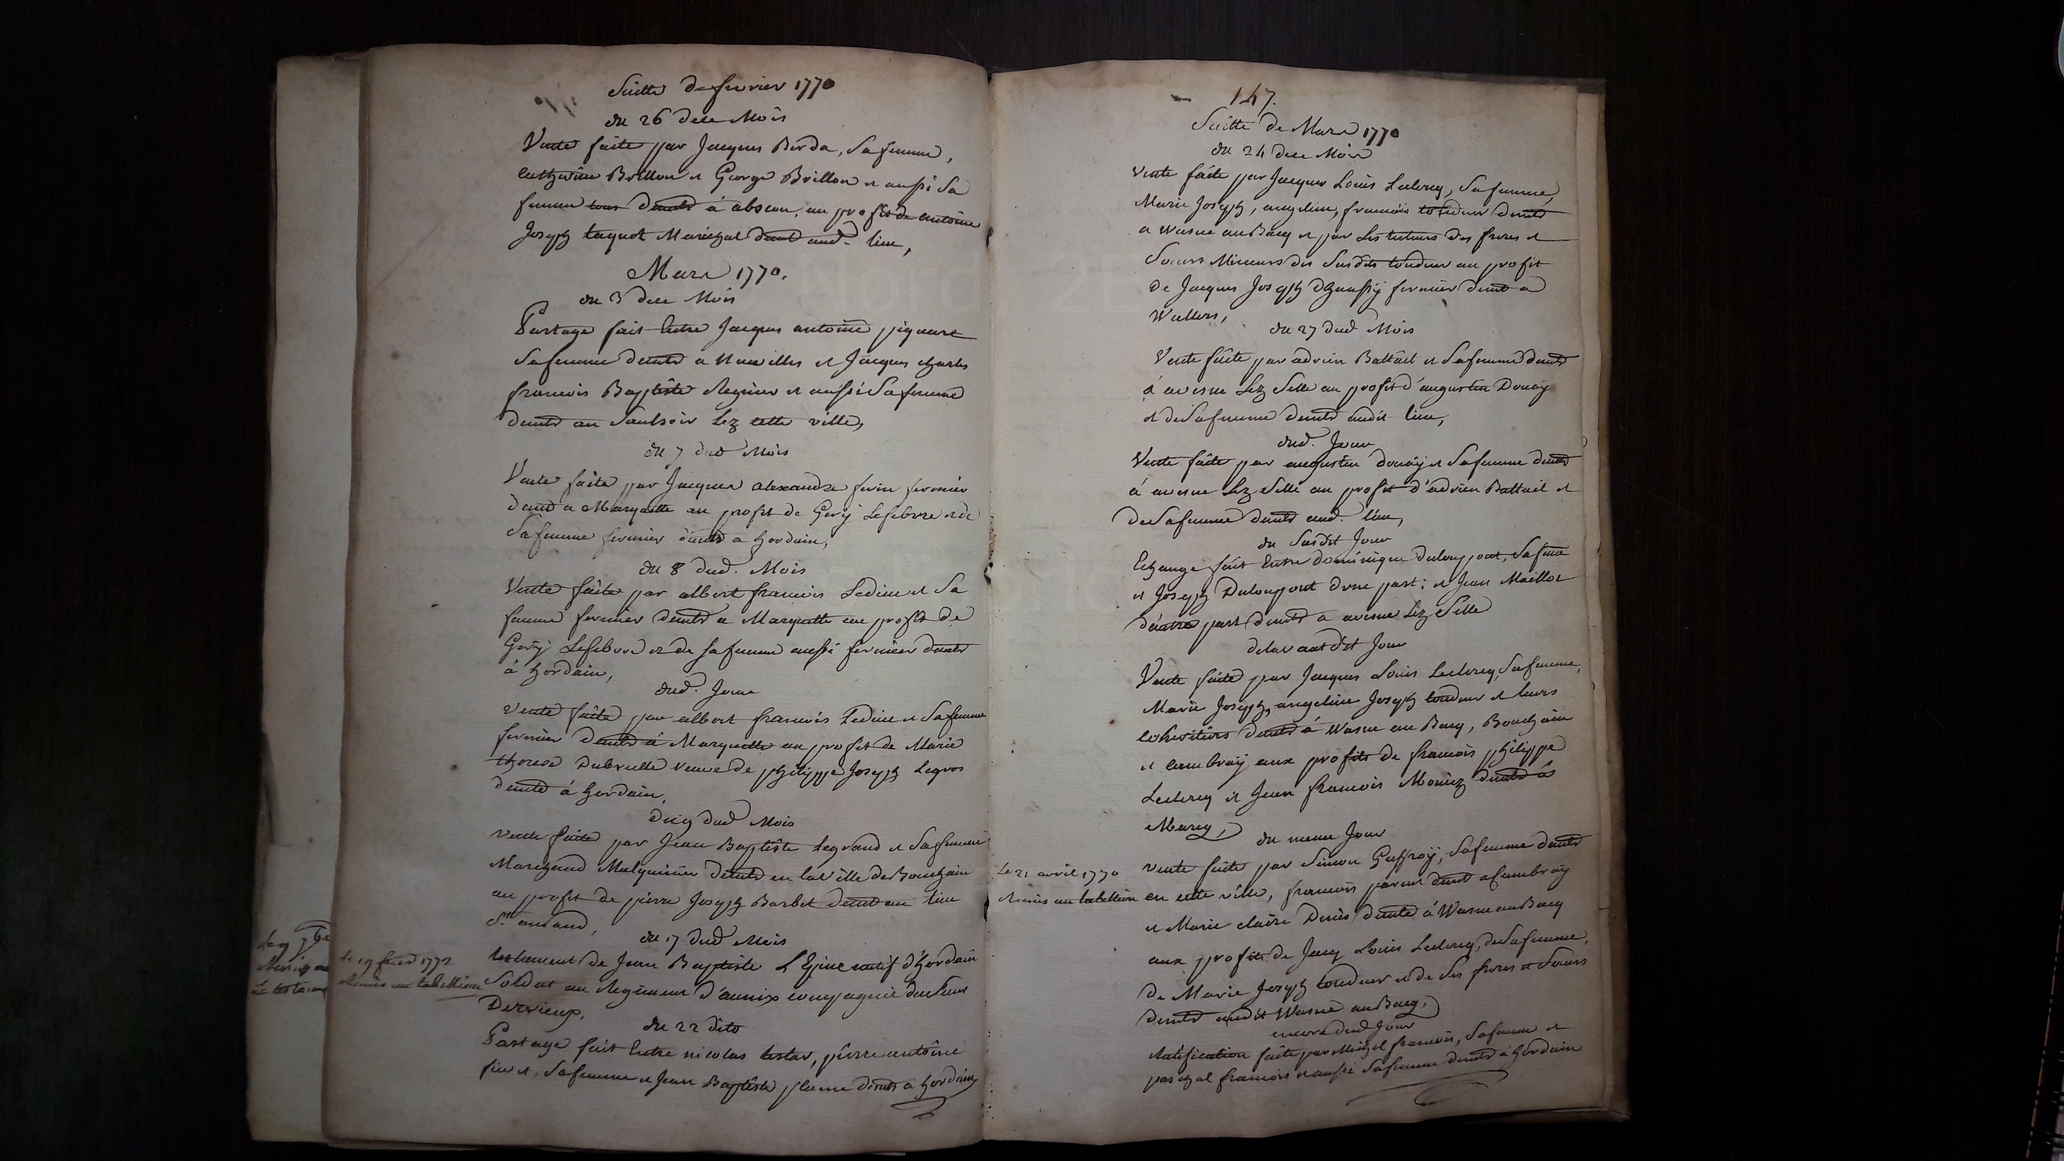 Suitte de fevrier 1770
du 26 dece Mois
Vente faite par Jacques Birda, Sa femme,
Catherine Brillon et George Brillon et aussi Sa
femme tous demts à abscon, au profit de antoine
Joseph taquet Marechal demt aud. lieu,
Mars 1770.
du 3 dece Mois
Partage fait Entre Jacques antoine piquart
Sa femme demts a et Jacques charles
francois Baptiste Regnier et aussi Sa femme
demts au Saulsoir Lez cette ville,
du 7 dud Mois
Vente faite par Jacques alexandre fermier
demt a Marquette au profit de Gery Lefebvre et de
Sa femme fermier demts a hordain,
du 8 dud. Mois
Vente faite par albert francois Ledieu et Sa
femme fermier demts a Marquette au profit de
Gery Lefebvre et de Sa femme aussi fermier demts
à hordain,
dud. Jour
Vente faite par albert francois Ledieu et Sa femme
fermier demts à Marquette au profit de Marie
therese Dubrulle veuve de philippe Joseph Legros
demte à hordain,
Du 9 dud Mois
vente faite par Jean Baptiste Legrand et Sa femme
Marchand Mulquinier demts en la ville de Bouchain
au profit de pierre Joseph Barbet demt au lieu
St. amand,
du 17 dud Mois
le 19 1772
Remis au tabellion
testament de Jean Baptiste L'Epine natif d'hordain
Soldat au Regiment d'aunix compagnie du Sieur
Dervieux,
du 22 dito
Partage fait Entre nicolas testar, pierre antoine
et Sa femme et Jean Baptiste plume demts a hordain
147.
Suitte de Mars 1770
du 24 dece Mois
Vente faite par Jacques Louis Leclercq, Sa femme,
Marie Joseph, angeline, francois toudeur demts
a Wasne au Bacq et par Les tuteurs des freres et
Soeurs Mineurs des Susdits toudeur au profit
de Jacques Joseph fermier demt a
Wallers,
du 27 dud Mois
Vente faite par adrien Battail et Sa femme demts
à avesne Lez Selle au profit d'augustin Douay
et de Sa femme demts audit lieu,
dud. Jour
Vente faite par augustin douay et Sa femme demts
à avesne Lez Selle au profit d'adrien Battail et
de Sa femme demts aud. lieu,
du Susdit Jour
Echange fait Entre dominique Dulouppont, Sa femme
et Joseph Dulouppont d'une part; et Jean Maillot
d'autre part demts a avesne Lez Selle
delavantdit Jour
Vente faite par Jacques Louis Leclercq, Sa femme,
Marie Joseph, angeline Joseph toudeur et leurs
cohéritiers demts à Wasne au Bacq, Bouchain
et cambray aux profits de francois philippe
Leclercq et Jean francois Moniez demts à
Marcq,
du meme Jour
Le 21 avril 1770
Remis au tabellion
vente faite par Simon Guffroy, Sa femme demts
en cette ville, francois parent demt a Cambray
et Marie claire demte à Wasne au Bacq
aux profits de Jacq Louis Leclercq, de Sa femme,
de Marie Joseph toudeur et de Ses freres et Soeurs
demts audit Wasne au Bacq,
encore dud Jour
Ratification faite par Michel francois, Sa femme et
paschal francois et aussi Sa femme demts à hordain